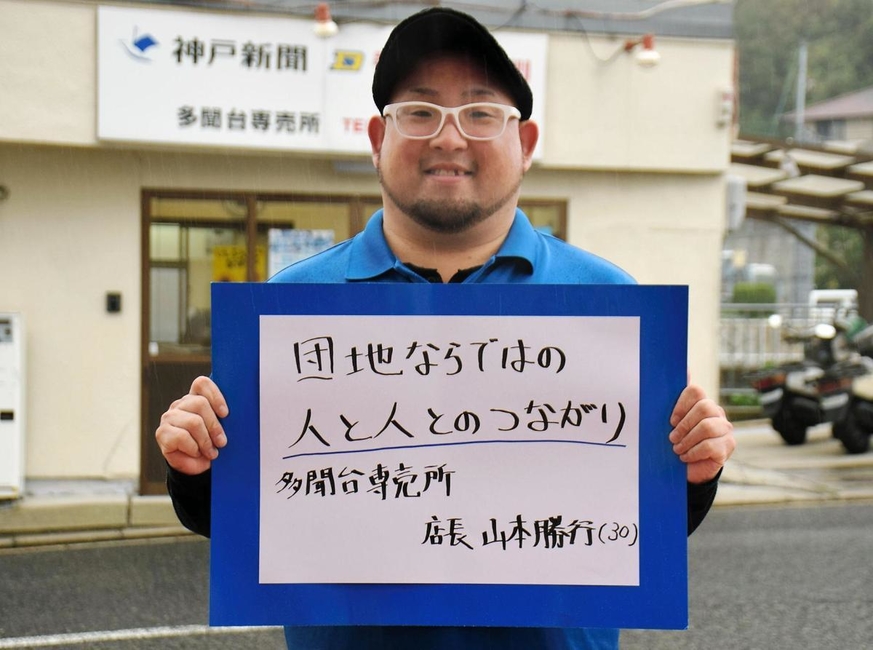 神戸新聞
多聞台専売所
TE
団地ならではの
人と人とのつながり
多聞台専売所
店長 山本勝行(30)